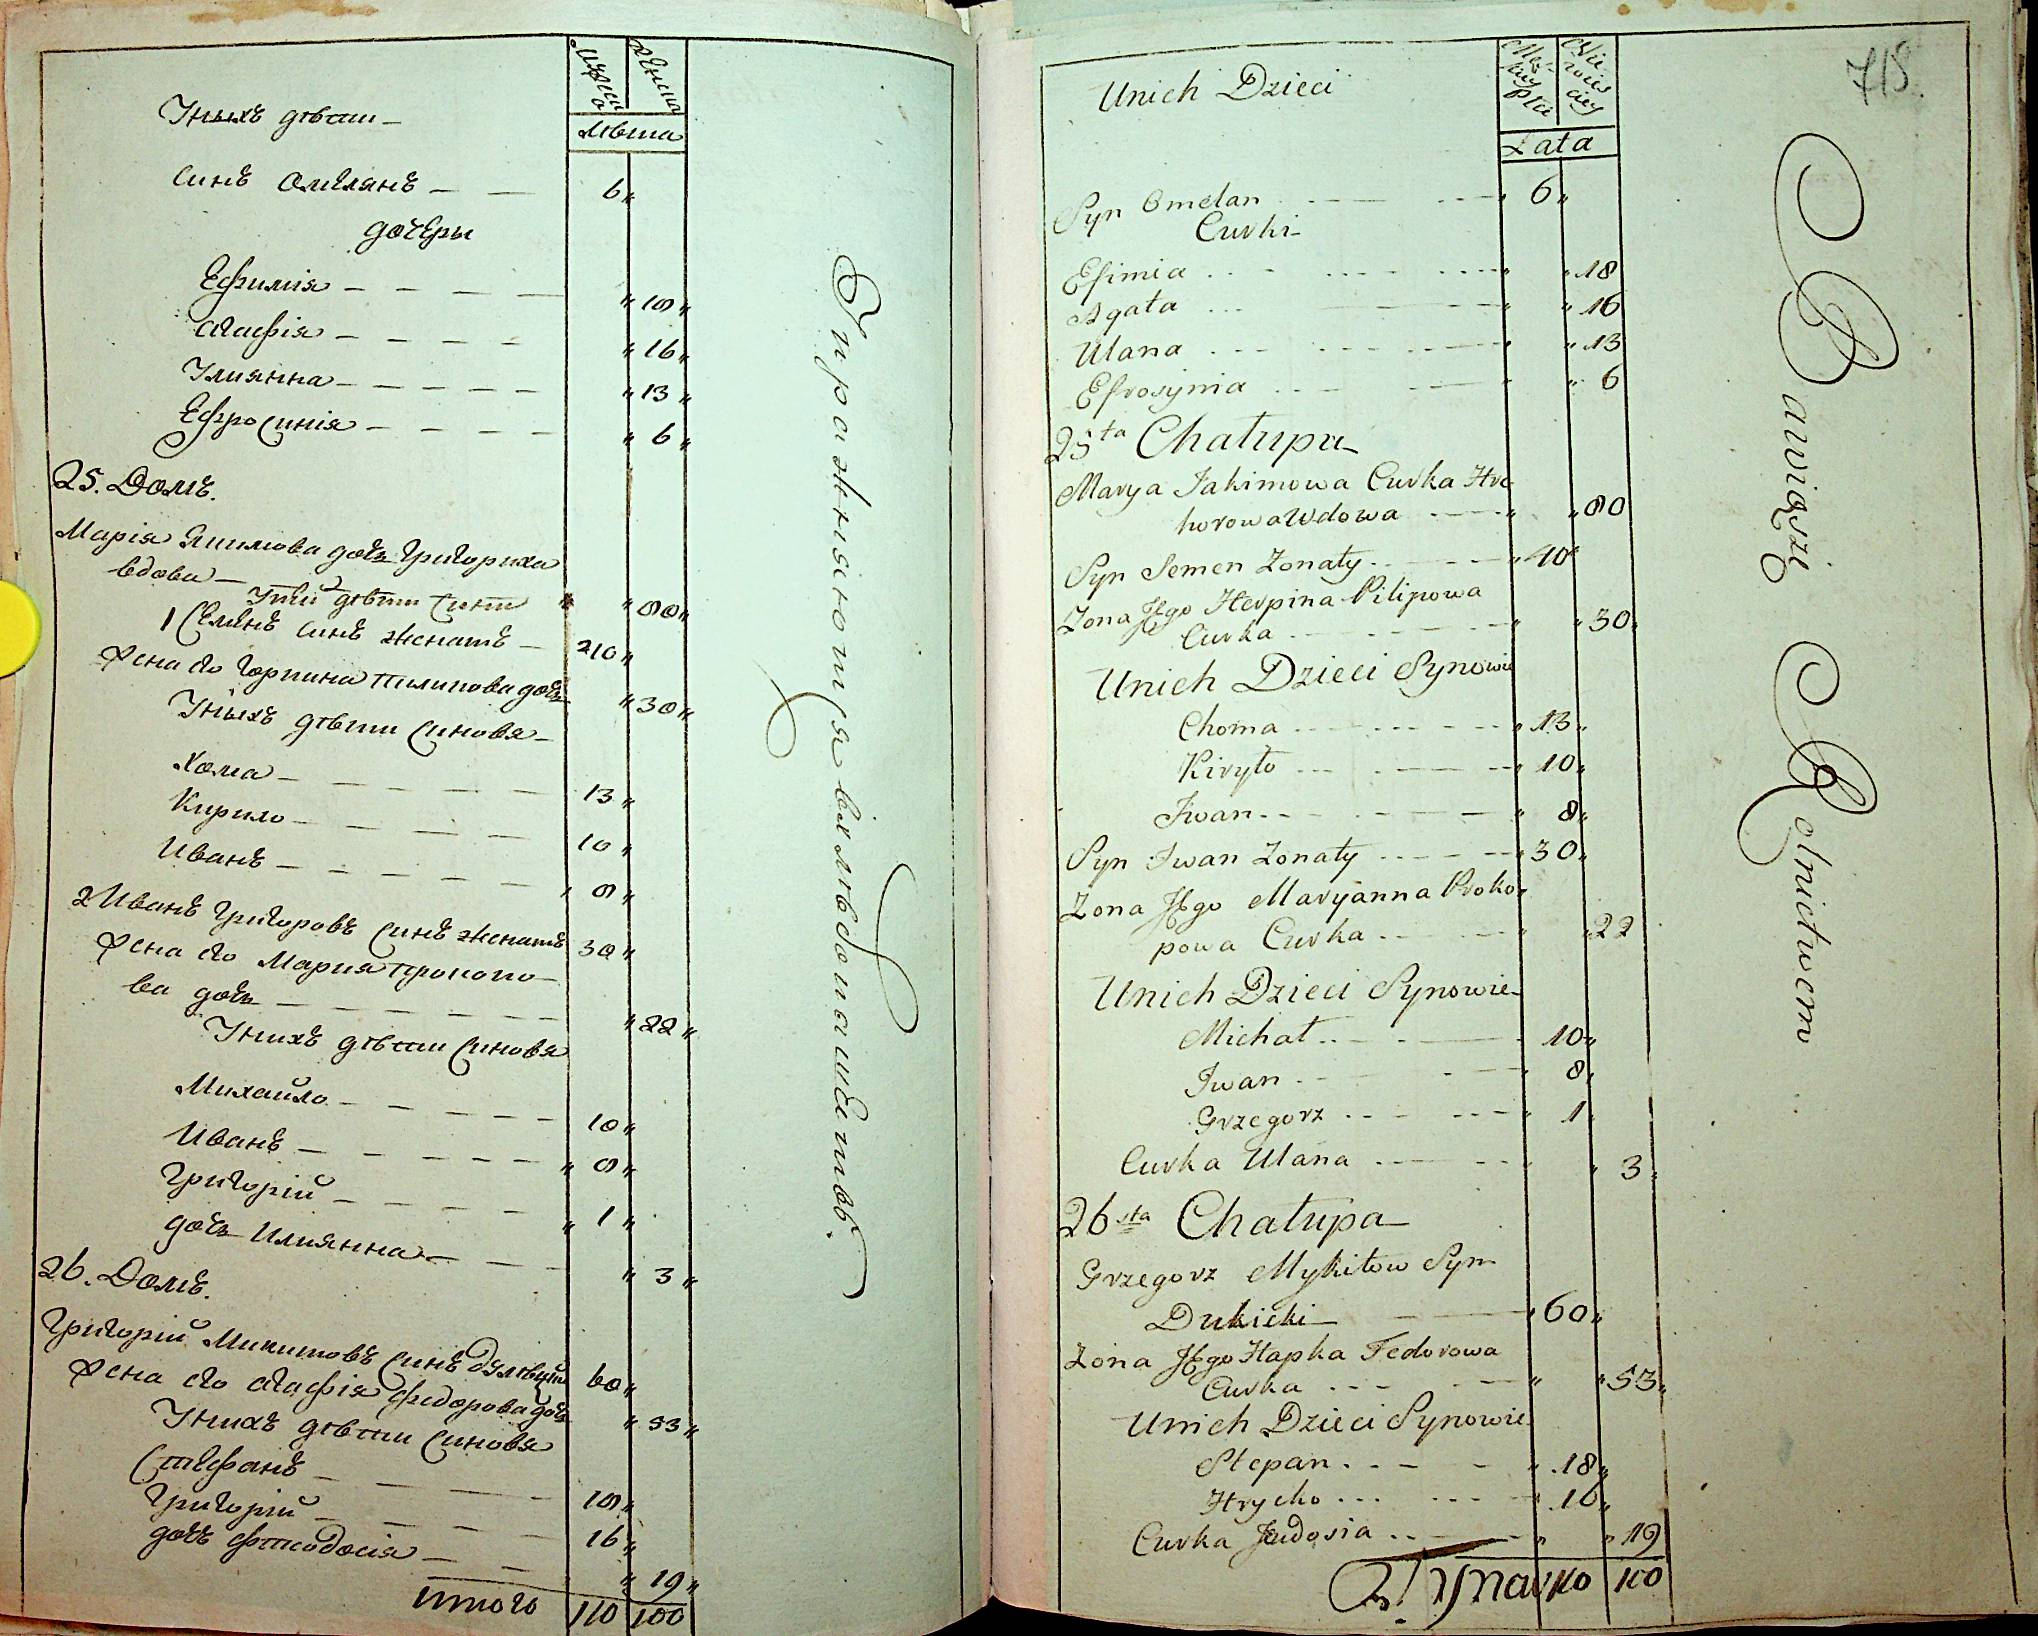 Мужеска
Женска
Лѣта
Унихъ дѣти
Синъ Омелянъ 6
дочеры
Ефимія 18
Агафія 16
Улиянна 13
Ефросинія 6
25. Домъ.
Марія Якимова дочь Григориха
вдова 80
Унїй дѣти сини
1 Семенъ синъ женатъ 40
Жена его Горпина Пилипова дочь 30
Унихъ дѣти Синовя
Хома 13
Кирило 10
Иванъ 8
2 Иванъ Григоровъ Синъ женатъ 30
Жена его Мария Прокопо-
ва дочь 22
Унихъ дѣти Синовя
Михайло 10
Иванъ 8
Григорій 1
дочь Илиянна 3
26. Домъ.
Григорій Микитовъ Синъ 60
Жена его Агафія Федорова дочь 53
Унихъ дѣти Синовя
Стефанъ 18
Григорій 16
дочь Феодосія 19
Итого 110 100
Упражняютця вхлѣбопашатвѣ.
718.
Męs-
kiey
Płci
Nie
wies
ciey
Lata
Unich Dzieci
Syn Omelan 6
Curki
Efimia 18
Agata 16
Ulana 13
Efrosynia 6
25ta Chałupa
Marya Jakimowa Curka Hre
horowa Wdowa 80
Syn Semen Żonaty 40
Żona Jego Herpina Pilipowa
Curka 30
Unich Dzieci Synowie
Choma 13
Kiryło 10
Iwan 8
Syn Iwan Żonaty 30
Żona Jego Maryanna Proko
powa Curka 22
Unich Dzieci Synowie
Michał 10
Iwan 8
Grzegorz 1
Curka Ulana 3
26sta Chałupa
Grzegorz Mykitow Syn
Dulicki 60
Żona Jego Hapka Fedorowa
Curka 53
Unich Dzieci Synowie
Stepan 18
Hrycko 16
Curka Jeudosia 19
110 100
Bawią się Rolnictwem